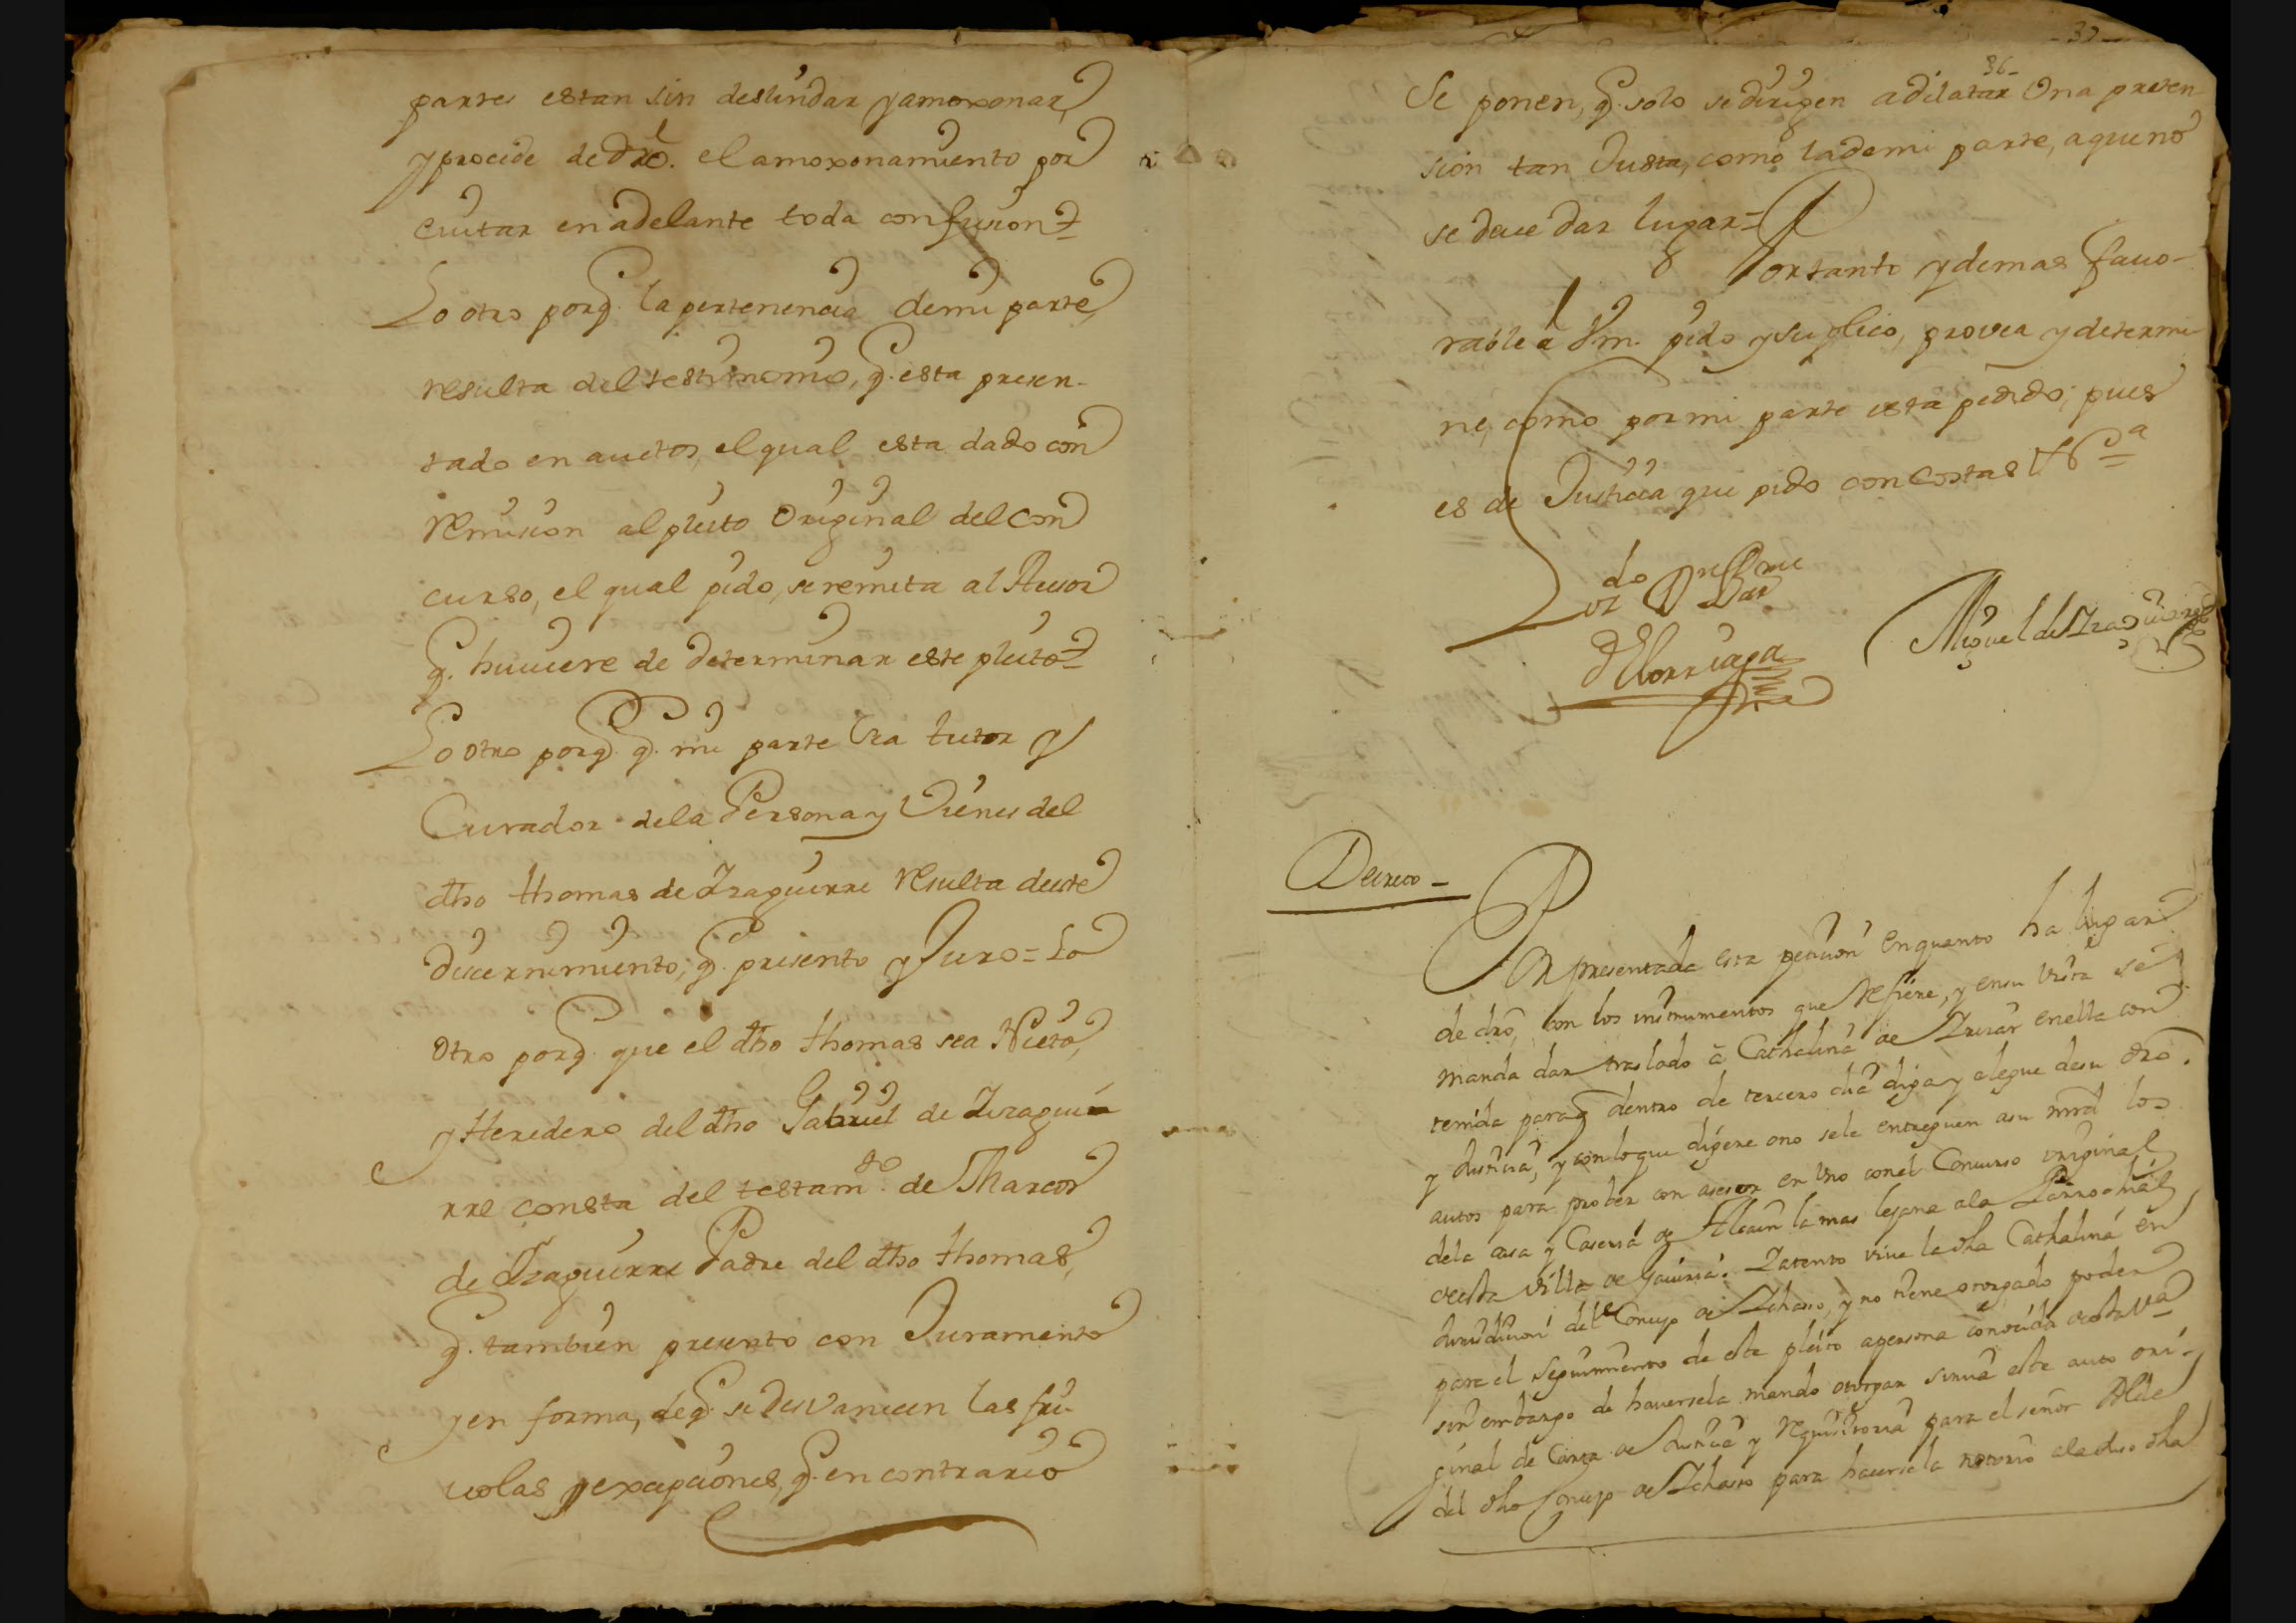 partes estan sin deslindar y amoxonar,
y procede de dro. el amoxonamiento por
euitar en adelante toda confusion=
Lo otro porq. la pertenencia de mi parte,
resulta del testimonio, q. esta presen-
tado en auctos, el qual esta dado con
remision al pleito original del con
curso, el qual pido, se remita al Assesor
q. huuiere de determinar este pleito=
Lo otro porq. q. mi parte sea tutor y
Curador de la Persona y Vienes del
dho thomas de Yraguirre resulta deeste
discernimiento; q. presento y Juro = Lo
otro porq. que el dho thomas sea Nieto,
y Heredero del dho Gabriel de Yragui
rre consta del testam.to de Marcos
de Yraguirre Padre del dho thomas,
q. tambien presento con Juramento
y en forma, de q. se desvanecen las fri-
uolas y excepciones, q. en contrario
36-
Se ponen, q. solo se dirigen a dilatar Vna preten
sion tan Justa, como la de mi parte, a que no
se deue dar lugar=
Por tanto y demas fauo-
rable a Vm. pido y suplico, provea y determi
ne, como por mi parte esta pedido; pues
es de Justicia que pido con Costas
d Elorriaga
Miguel de Yraguirre
Decreto-
Por presentada esta peticion en quanto ha lugar
de dro, con los instrumentos que refiere, y en su vista se
manda dar traslado a Cathalina de Yrizar en ella con
tenida para q dentro de tercero dia diga y alegue de su dro.
y Justicia, y con lo que digere o no se le entreguen a su mrd los
autos para prober con asesor en Vno con el Concurso original
de la casa y Caseria de Alcain la mas lejana a la Parrochial
de esta Villa de Gauiria. Y atento viue la dha Cathalina en
Jurisdicion del Concejo de Ychaso, y no tiene otorgado poder
para el seguimiento de este pleito a persona conocida de esta Va
sin embargo de hauersela mando otorgar sirua este auto ori-
ginal de Carta de Justicia y requisitoria para el señor Alde
del dho Concejo de Ychaso para hacersela notorio a la suso dha